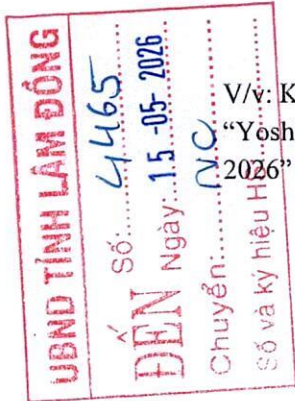 UBND TỈNH LÂM ĐỒNG
ĐẾN
Số: 4465
Ngày: 15-05-2026
Chuyển: NC
Số và ký hiệu H
V/v: K
“Yosh
2026”